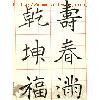 壽春滿
乾坤福